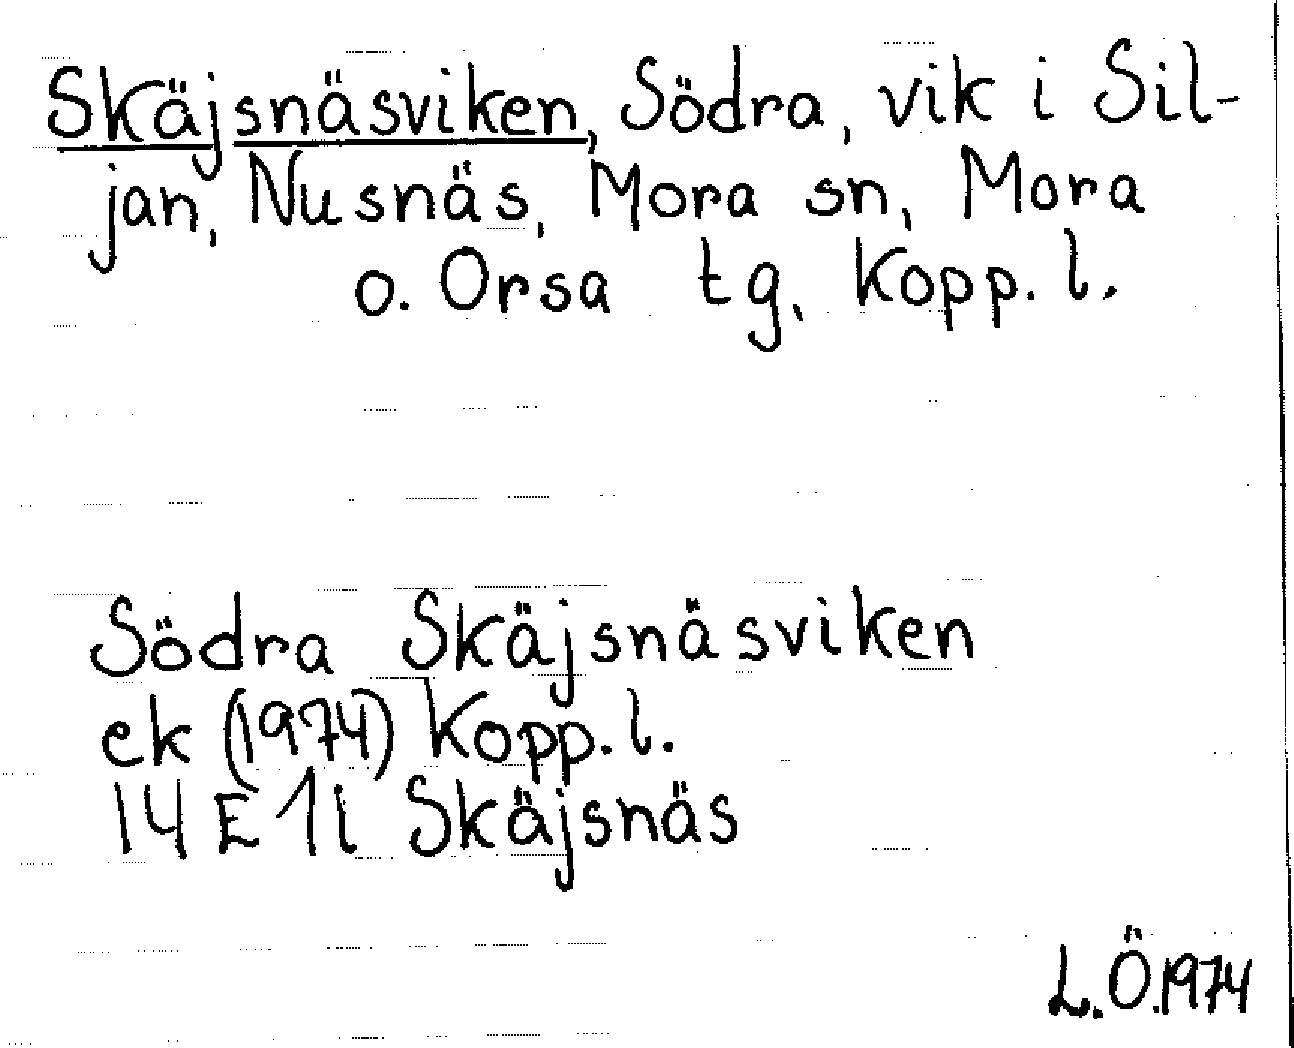 Skäjsnäsviken, Södra, vik i Sil-
jan, Nusnäs, Mora sn, Mora
o. Orsa tg, Kopp. l.
Södra Skäjsnäsviken
ek (1974) Kopp. l.
14 E 1l Skäjsnäs
L. Ö. 1974